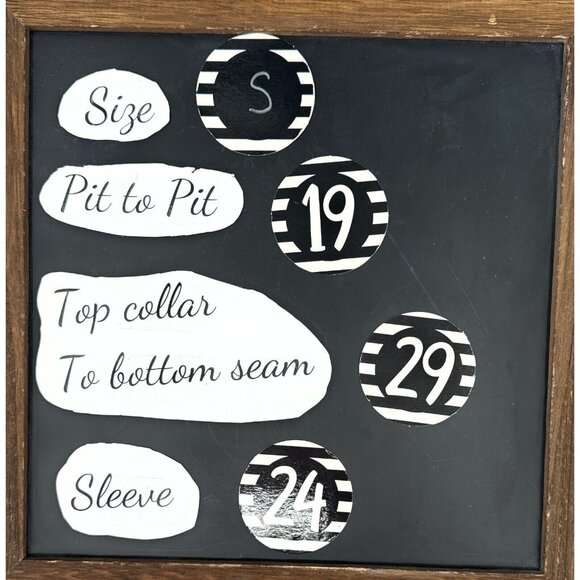 Size S
Pit to Pit 19
Top collar
To bottom seam 29
Sleeve 24